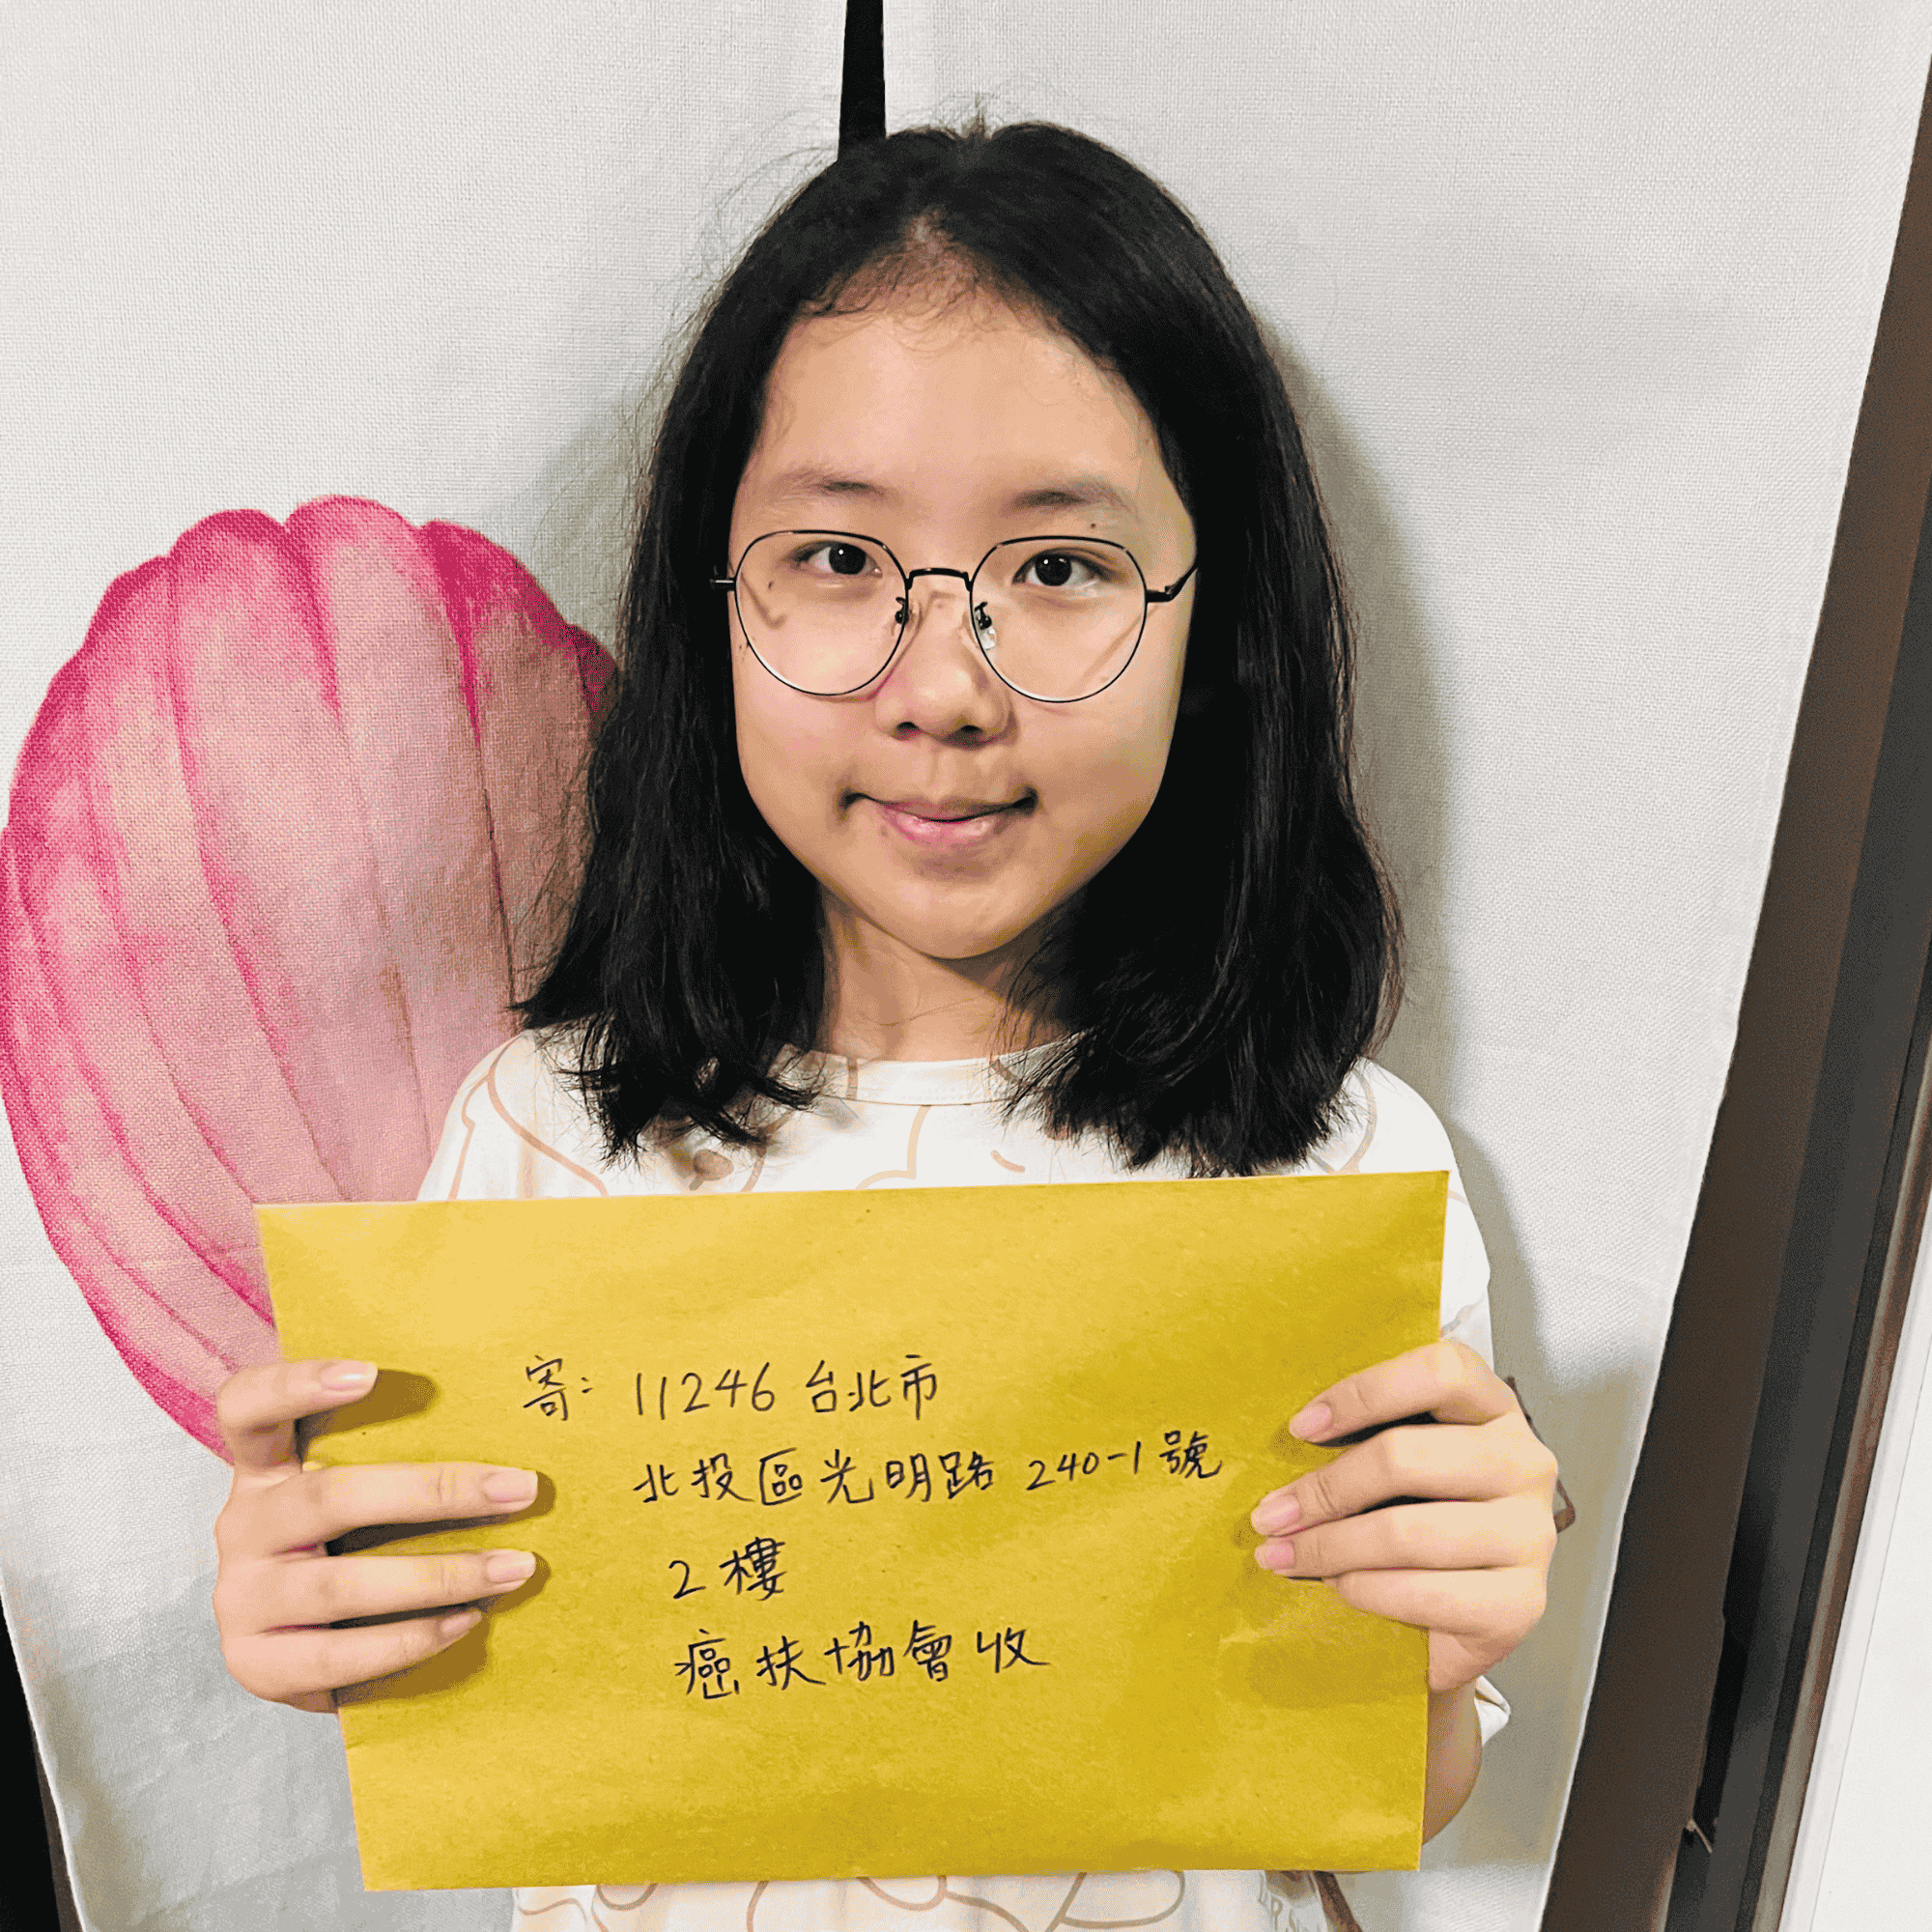 寄：11246 台北市
北投區光明路 240-1號
2樓
癌扶協會收